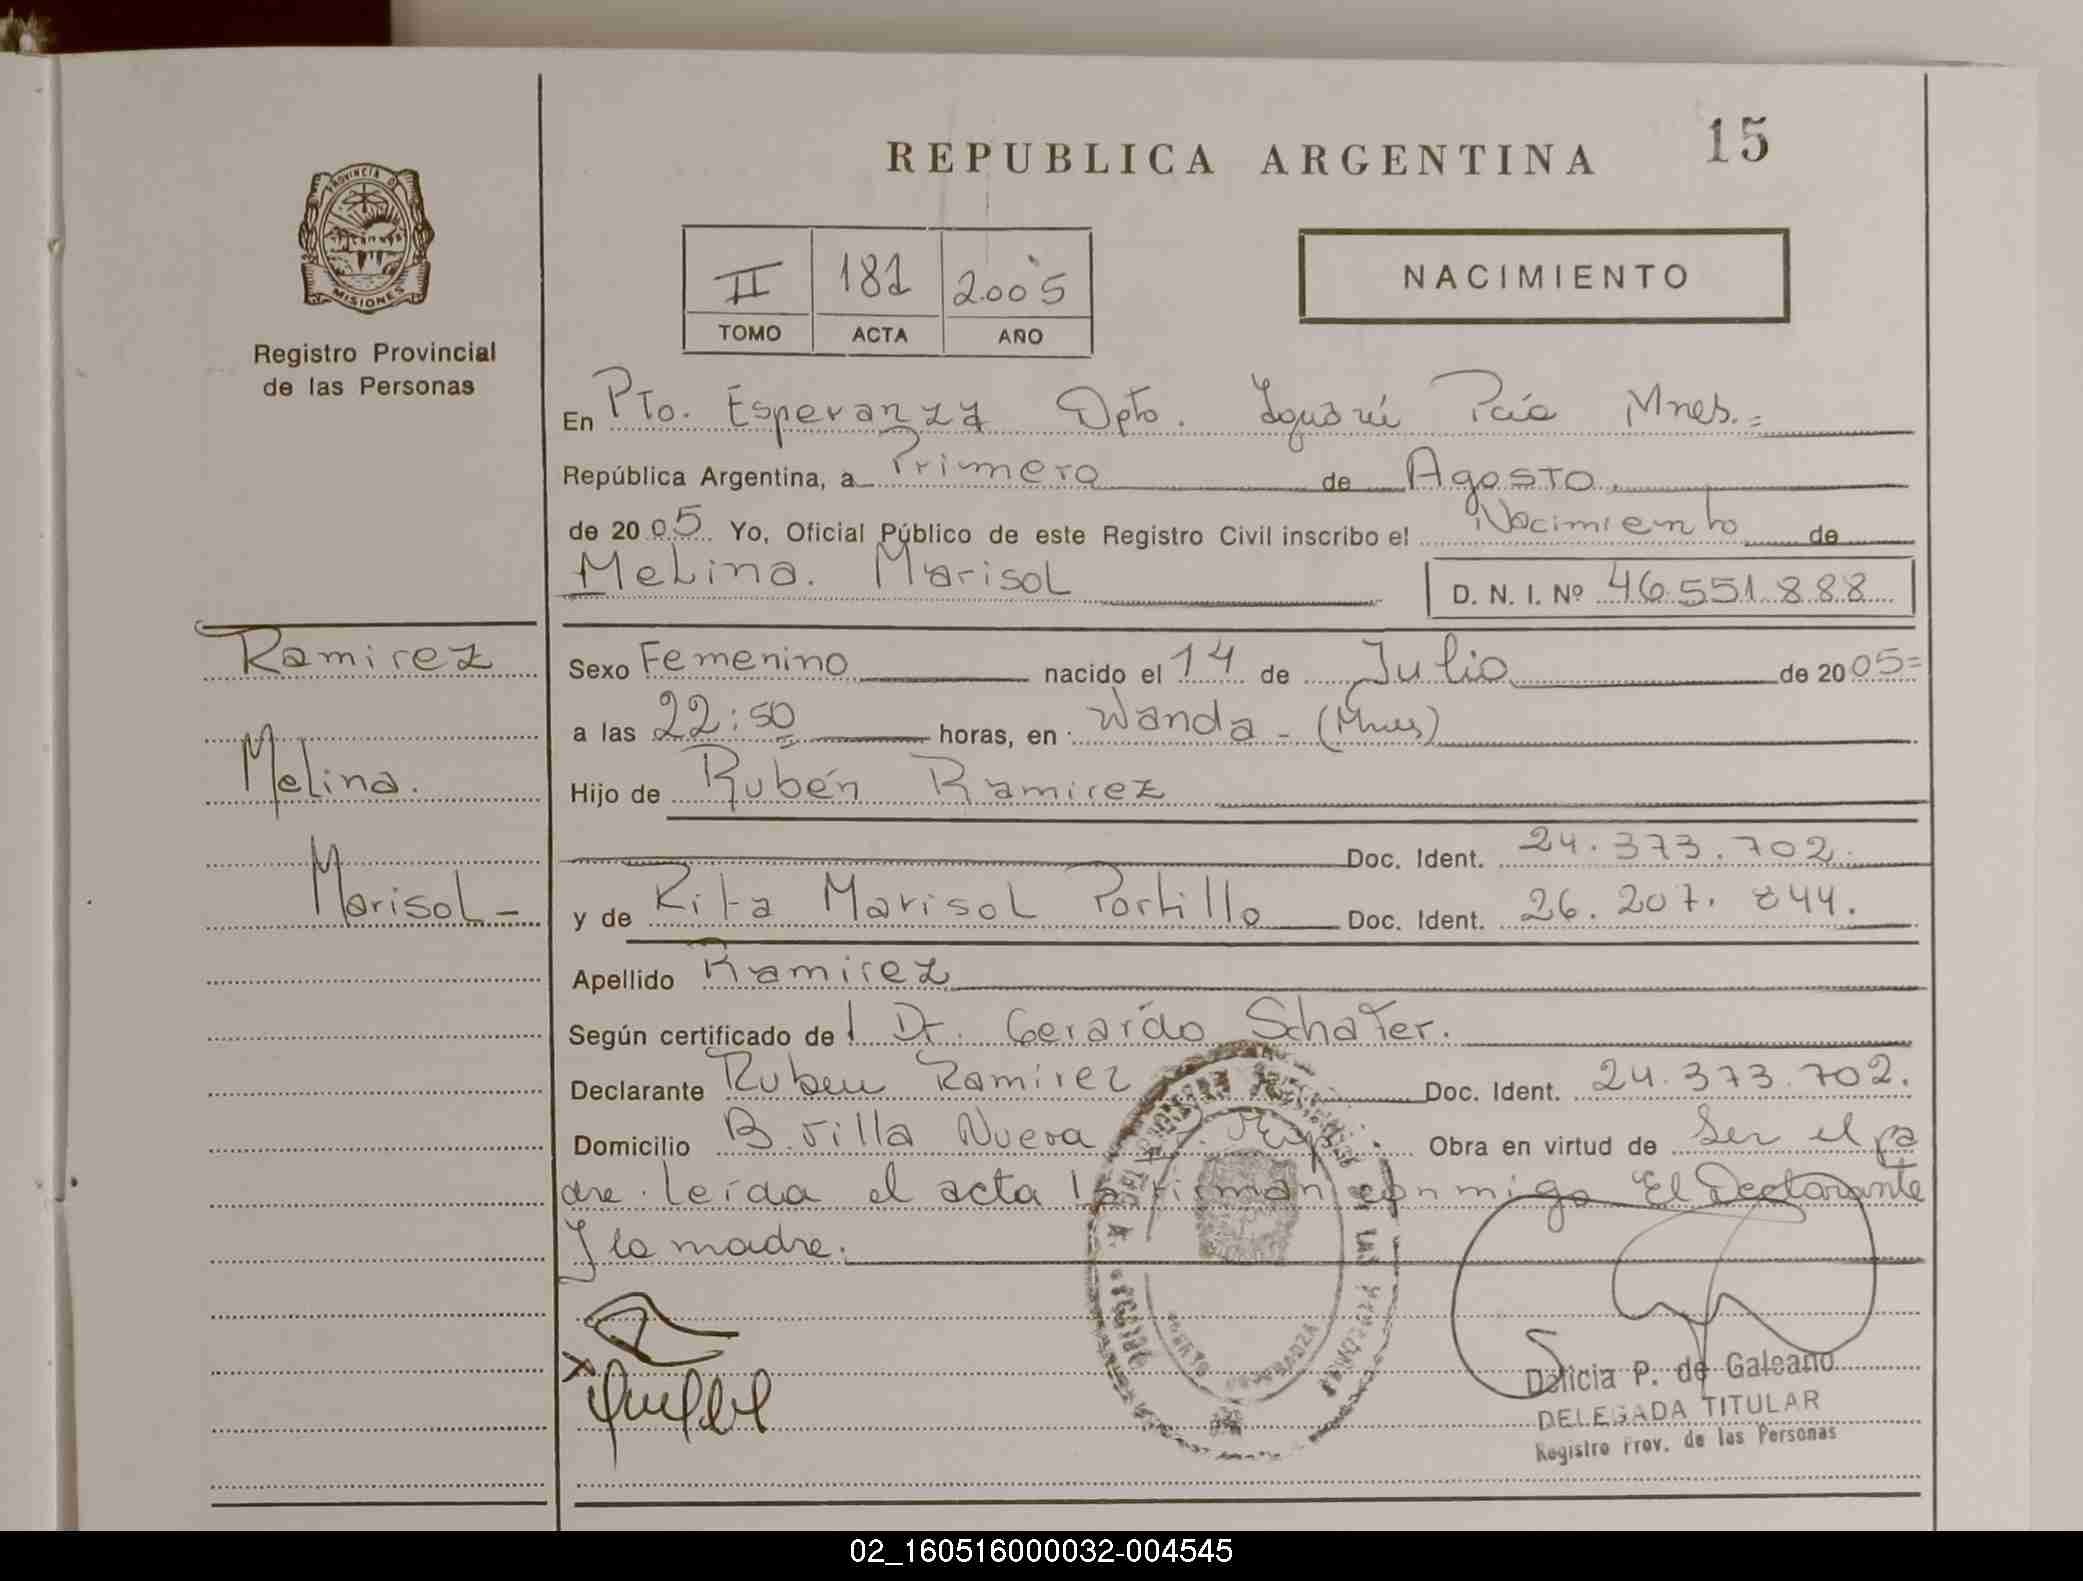 PROVINCIA D
MISIONES
Registro Provincial
de las Personas
Ramirez
Melina.
Marisol -
REPUBLICA ARGENTINA
15
II 182 2.005
TOMO ACTA AÑO
NACIMIENTO
En Pto. Esperanza Dpto. Iguazú Pcia Mnes.=
República Argentina, a Primero de Agosto
de 2005 Yo, Oficial Público de este Registro Civil inscribo el Nacimiento de
Melina. Marisol
D. N. I. Nº 46.551.888
Sexo Femenino nacido el 14 de Julio de 2005=
a las 22:50 horas, en Wanda - (Mnes)
Hijo de Rubén Ramirez
Doc. Ident. 24.373.702.
y de Rita Marisol Portillo Doc. Ident. 26.207.844.
Apellido Ramirez
Según certificado de l Dr. Gerardo Schafer.
Declarante Ruben Ramirez Doc. Ident. 24.373.702.
Domicilio B. Villa Nueva Obra en virtud de Ser el pa
dre. Leída el acta la firman conmigo El Declarante
y la madre.
Delicia P. de Galeano
DELEGADA TITULAR
Registro Prov. de las Personas
02_160516000032-004545